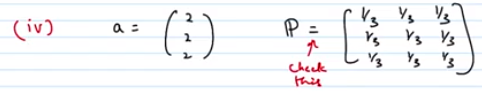 (iv) a = (2 2 2) P = [1/3 1/3 1/3
1/3 1/3 1/3
1/3 1/3 1/3]
check
this